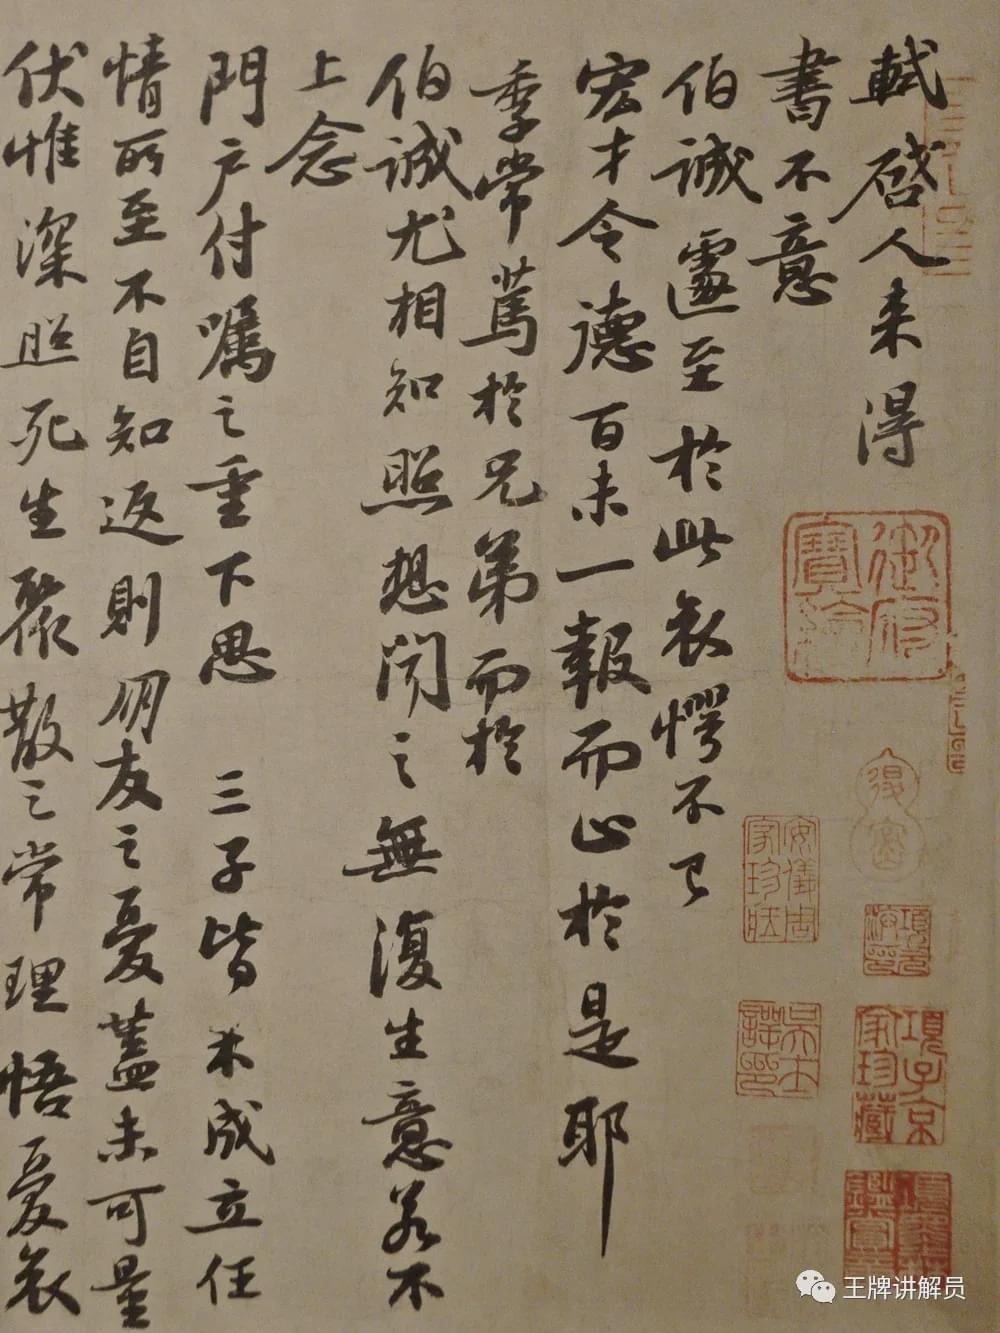 軾啓人来得
書不意
伯誠遽至於此哀愕不已
宏才令德百未一報而止於是耶
季常篤於兄弟而於
伯誠尤相知照想聞之無復生意若不
上念
門户付囑之重下思三子皆未成立任
情所至不自知返則朋友之憂蓋未可量
伏惟深照死生聚散之常理悟憂哀
御府寶繪
安儀周家珍藏
項元汴印
項子京家珍藏
王牌讲解员